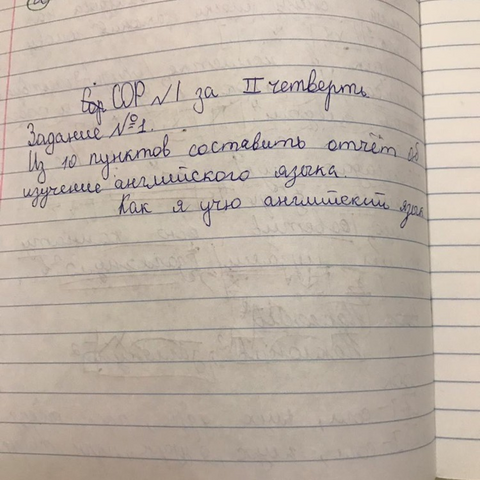 СОР №1 за II четверть
Задание №1.
Из 10 пунктов составить отчёт об
изучение английского языка.
Как я учю английский язык